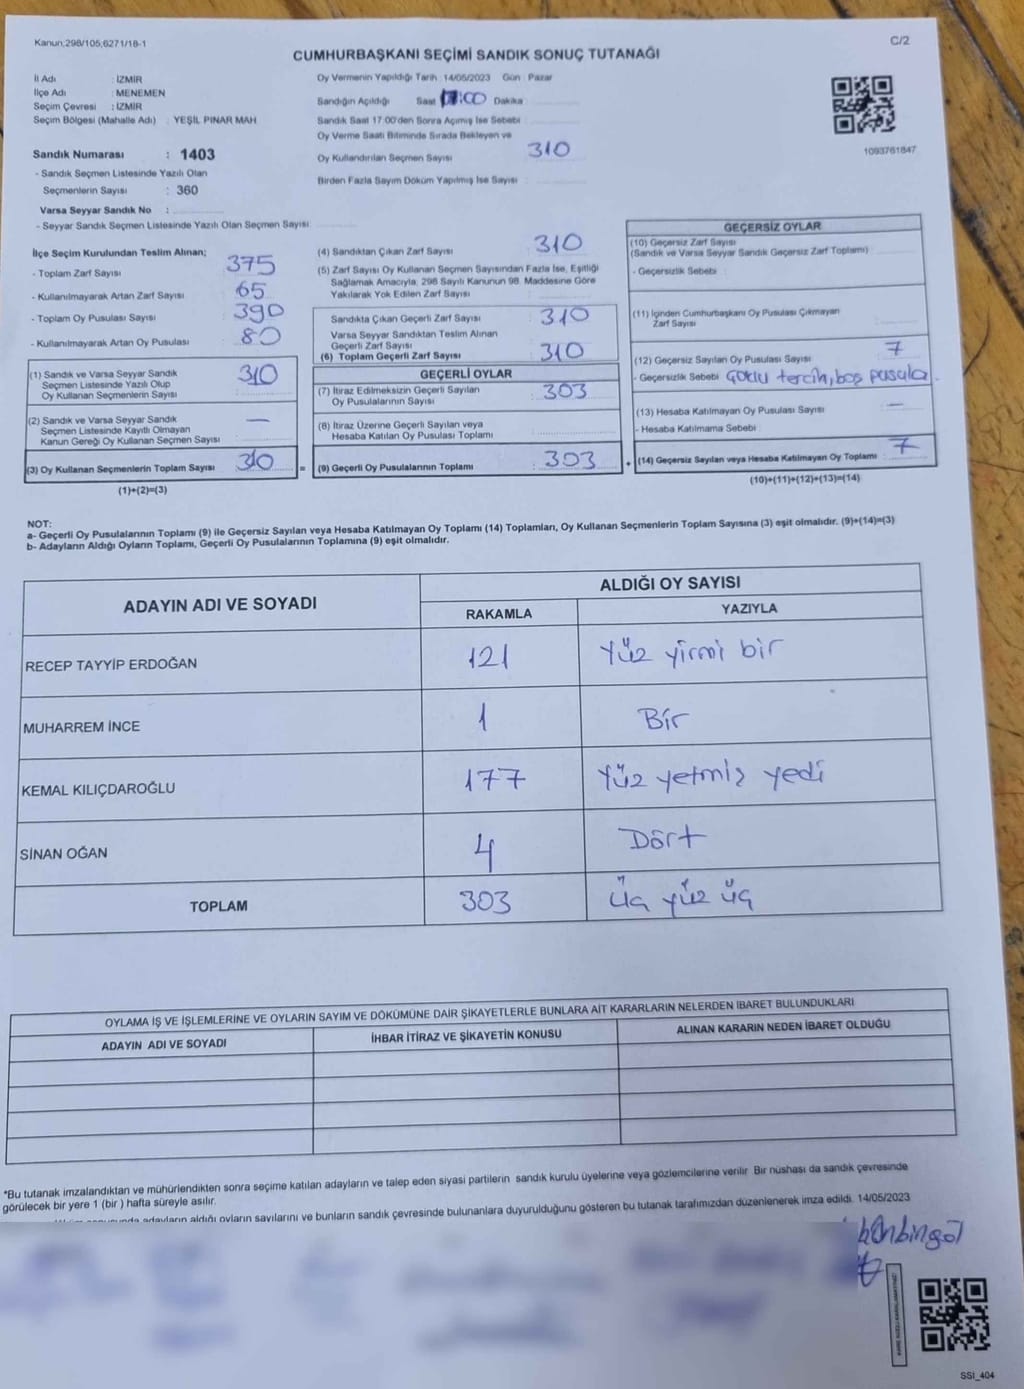 Kanun;298/105;6271/18-1
C/2
CUMHURBAŞKANI SEÇİMİ SANDIK SONUÇ TUTANAĞI
İl Adı : İZMİR
İlçe Adı : MENEMEN
Seçim Çevresi : İZMİR
Seçim Bölgesi (Mahalle Adı) : YEŞİL PINAR MAH
Sandık Numarası : 1403
- Sandık Seçmen Listesinde Yazılı Olan
Seçmenlerin Sayısı : 360
Varsa Seyyar Sandık No :
- Seyyar Sandık Seçmen Listesinde Yazılı Olan Seçmen Sayısı:
Oy Vermenin Yapıldığı Tarih : 14/05/2023 Gün : Pazar
Sandığın Açıldığı Saat :00 Dakika
Sandık Saat 17.00'den Sonra Açımış İse Sebebi :
Oy Verme Saati Bitiminde Sırada Bekleyen ve
Oy Kullandırılan Seçmen Sayısı : 310
Birden Fazla Sayım Döküm Yapılmış İse Sayısı :
1093761847
İlçe Seçim Kurulundan Teslim Alınan;
- Toplam Zarf Sayısı : 375
- Kullanılmayarak Artan Zarf Sayısı : 65
- Toplam Oy Pusulası Sayısı : 390
- Kullanılmayarak Artan Oy Pusulası : 80
(1) Sandık ve Varsa Seyyar Sandık
Seçmen Listesinde Yazılı Olup
Oy Kullanan Seçmenlerin Sayısı : 310
(2) Sandık ve Varsa Seyyar Sandık
Seçmen Listesinde Kayıtlı Olmayan
Kanun Gereği Oy Kullanan Seçmen Sayısı : —
(3) Oy Kullanan Seçmenlerin Toplam Sayısı : 310
=
(1)+(2)=(3)
(4) Sandıktan Çıkan Zarf Sayısı : 310
(5) Zarf Sayısı Oy Kullanan Seçmen Sayısından Fazla İse, Eşitliği
Sağlamak Amacıyla, 298 Sayılı Kanunun 98. Maddesine Göre
Yakılarak Yok Edilen Zarf Sayısı :
Sandıkta Çıkan Geçerli Zarf Sayısı : 310
Varsa Seyyar Sandıktan Teslim Alınan
Geçerli Zarf Sayısı :
(6) Toplam Geçerli Zarf Sayısı : 310
GEÇERLİ OYLAR
(7) İtiraz Edilmeksizin Geçerli Sayılan
Oy Pusulalarının Sayısı : 303
(8) İtiraz Üzerine Geçerli Sayılan veya
Hesaba Katılan Oy Pusulası Toplamı :
(9) Geçerli Oy Pusulalarının Toplamı : 303
+
GEÇERSİZ OYLAR
(10) Geçersiz Zarf Sayısı
(Sandık ve Varsa Seyyar Sandık Geçersiz Zarf Toplamı) :
- Geçersizlik Sebebi :
(11) İçinden Cumhurbaşkanı Oy Pusulası Çıkmayan
Zarf Sayısı :
(12) Geçersiz Sayılan Oy Pusulası Sayısı : 7
- Geçersizlik Sebebi : Çoklu tercih, boş pusula.
(13) Hesaba Katılmayan Oy Pusulası Sayısı : —
- Hesaba Katılmama Sebebi :
(14) Geçersiz Sayılan veya Hesaba Katılmayan Oy Toplamı : 7
(10)+(11)+(12)+(13)=(14)
NOT:
a- Geçerli Oy Pusulalarının Toplamı (9) ile Geçersiz Sayılan veya Hesaba Katılmayan Oy Toplamı (14) Toplamları, Oy Kullanan Seçmenlerin Toplam Sayısına (3) eşit olmalıdır. (9)+(14)=(3)
b- Adayların Aldığı Oyların Toplamı, Geçerli Oy Pusulalarının Toplamına (9) eşit olmalıdır.
ADAYIN ADI VE SOYADI
ALDIĞI OY SAYISI
RAKAMLA YAZIYLA
RECEP TAYYİP ERDOĞAN 121 Yüz yirmi bir
MUHARREM İNCE 1 Bir
KEMAL KILIÇDAROĞLU 177 Yüz yetmiş yedi
SİNAN OĞAN 4 Dört
TOPLAM 303 Üç yüz üç
OYLAMA İŞ VE İŞLEMLERİNE VE OYLARIN SAYIM VE DÖKÜMÜNE DAİR ŞİKAYETLERLE BUNLARA AİT KARARLARIN NELERDEN İBARET BULUNDUKLARI
ADAYIN ADI VE SOYADI İHBAR İTİRAZ VE ŞİKAYETİN KONUSU ALINAN KARARIN NEDEN İBARET OLDUĞU
*Bu tutanak imzalandıktan ve mühürlendikten sonra seçime katılan adayların ve talep eden siyasi partilerin sandık kurulu üyelerine veya gözlemcilerine verilir. Bir nüshası da sandık çevresinde
görülecek bir yere 1 (bir ) hafta süreyle asılır.
adayların aldığı oyların sayılarını ve bunların sandık çevresinde bulunanlara duyurulduğunu gösteren bu tutanak tarafımızdan düzenlenerek imza edildi. 14/05/2023
SSI_404